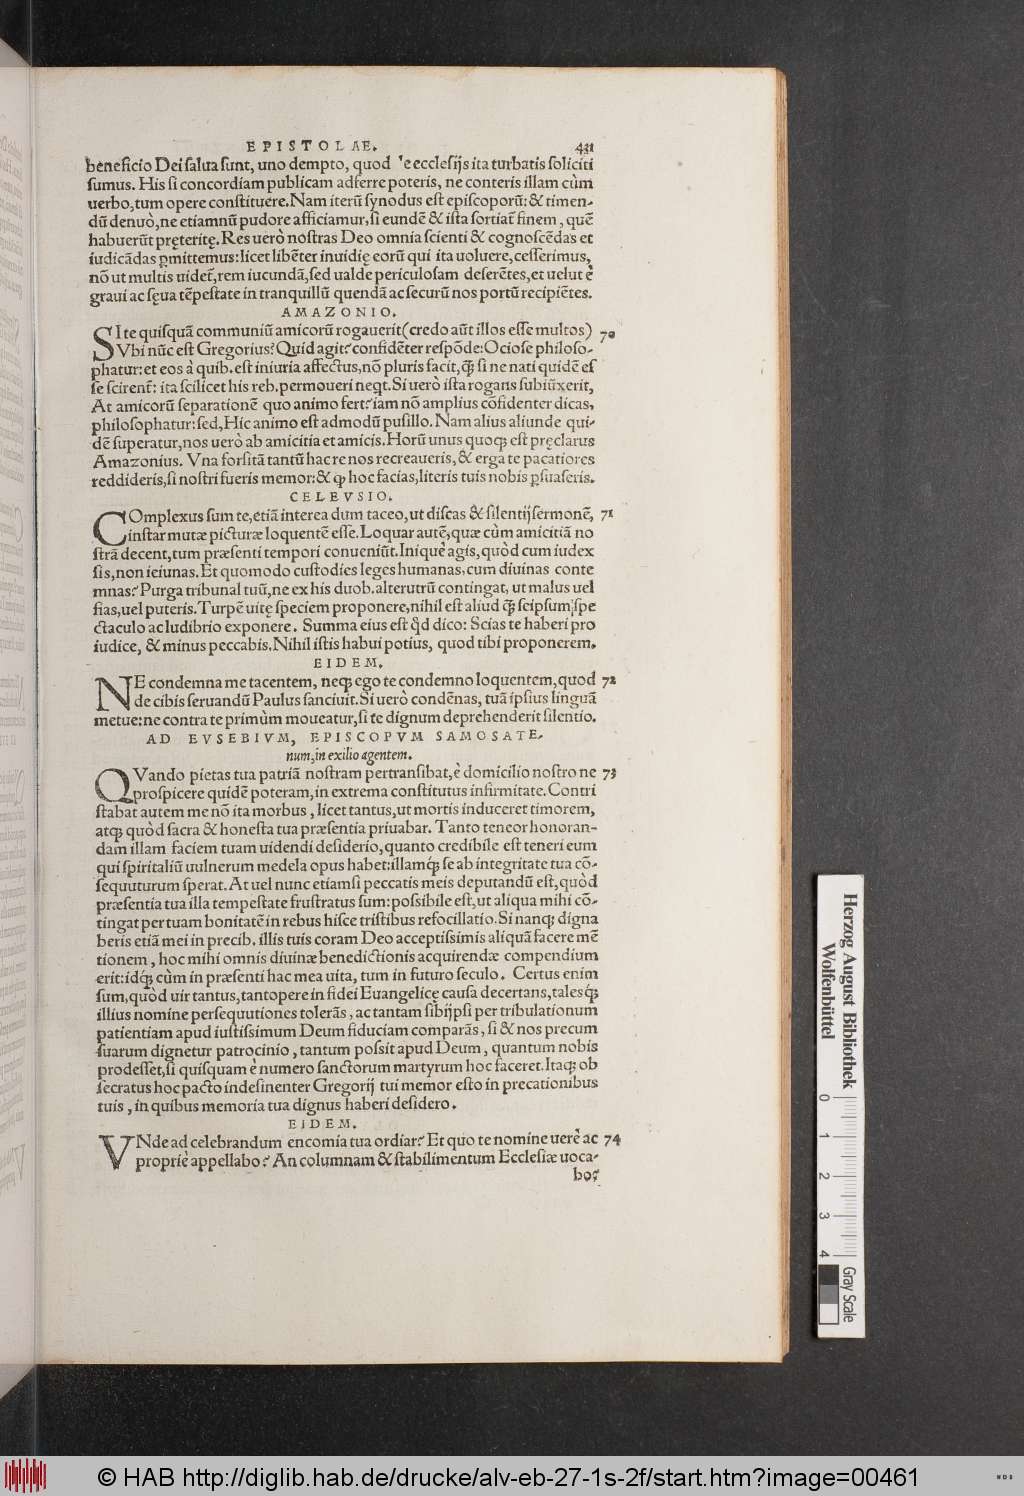 EPISTOLAE. 431
beneficio Dei salua sunt, uno dempto, quod e ecclesijs ita turbatis soliciti
sumus. His si concordiam publicam adferre poteris, ne conteris illam cùm
uerbo, tum opere constituere. Nam iterũ synodus est episcoporũ: & timen-
dũ denuò, ne etiamnũ pudore afficiamur, si eundẽ & ista sortiat᷒ finem, quẽ
habuerũt pręteritę. Res uerò nostras Deo omnia scienti & cognoscẽdas et
iudicãdas ꝑmittemus: licet libẽter inuidię eorũ qui ita uoluere, cesserimus,
nõ ut multis uidet᷒, rem iucundã, sed ualde periculosam deserẽtes, et uelut è
graui ac sęua tẽpestate in tranquillũ quendã ac securũ nos portũ recipiẽtes.
AMAZONIO.
SI te quisquã communiũ amicorũ rogauerit (credo aũt illos esse multos) 70
Vbi nũc est Gregorius? Quid agit? confidẽter respõde: Ociose philoso-
phatur: et eos à quib. est iniuria affectus, nõ pluris facit, ꝗ̃ si ne nati quidẽ es
se scirent᷒: ita scilicet his reb. permoueri neqt. Si uerò ista rogans subiũxerit,
At amicorũ separationẽ quo animo fert? iam nõ amplius cõfidenter dicas,
philosophatur: sed, Hic animo est admodũ pusillo. Nam alius aliunde qui-
dẽ superatur, nos uerò ab amicitia et amicis. Horũ unus quoqꝫ est pręclarus
Amazonius. Vna forsitã tantũ hac re nos recreaueris, & erga te pacatiores
reddideris, si nostri fueris memor: & ꝙ hoc facias, literis tuis nobis ꝑsuaseris.
CELEVSIO.
COmplexus sum te, etiã interea dum taceo, ut discas & silentij sermonẽ, 71
instar mutæ picturæ loquentẽ esse. Loquar autẽ, quæ cùm amicitiã no
strã decent, tum præsenti tempori conueniũt. Iniquè agis, quòd cum iudex
sis, non ieiunas. Et quomodo custodies leges humanas, cum diuinas conte
mnas? Purga tribunal tuũ, ne ex his duob. alterutrũ contingat, ut malus uel
fias, uel puteris. Turpẽ uitę speciem proponere, nihil est aliud ꝗ̃ seipsum spe
ctaculo ac ludibrio exponere. Summa eius est qd dico: Scias te haberi pro
iudice, & minus peccabis. Nihil istis habui potius, quod tibi proponerem.
EIDEM.
NE condemna me tacentem, neqꝫ ego te condemno loquentem, quod 72
de cibis seruandũ Paulus sanciuit. Si uerò condẽnas, tuã ipsius linguã
metue: ne contra te primùm moueatur, si te dignum deprehenderit silentio.
AD EVSEBIVM, EPISCOPVM SAMOSATE-
num, in exilio agentem.
QVando pietas tua patriã nostram pertransibat, è domicilio nostro ne 73
prospicere quidẽ poteram, in extrema constitutus infirmitate. Contri
stabat autem me nõ ita morbus, licet tantus, ut mortis induceret timorem,
atqꝫ quòd sacra & honesta tua præsentia priuabar. Tanto teneor honoran-
dam illam faciem tuam uidendi desiderio, quanto credibile est teneri eum
qui spiritaliũ uulnerum medela opus habet: illamqꝫ se ab integritate tua cõ-
sequuturum sperat. At uel nunc etiamsi peccatis meis deputandũ est, quòd
præsentia tua illa tempestate frustratus sum: possibile est, ut aliqua mihi cõ-
tingat per tuam bonitatẽ in rebus hisce tristibus refocillatio. Si nanqꝫ digna
beris etiã mei in precib. illis tuis coram Deo acceptissimis aliquã facere mẽ
tionem, hoc mihi omnis diuinæ benedictionis acquirendæ compendium
erit: idqꝫ cùm in præsenti hac mea uita, tum in futuro seculo. Certus enim
sum, quòd uir tantus, tantopere in fidei Euangelicę causa decertans, talesqꝫ
illius nomine persequutiones tolerãs, ac tantam sibijpsi per tribulationum
patientiam apud iustissimum Deum fiduciam comparãs, si & nos precum
suarum dignetur patrocinio, tantum possit apud Deum, quantum nobis
prodesset, si quisquam è numero sanctorum martyrum hoc faceret. Itaqꝫ ob
secratus hoc pacto indesinenter Gregorij tui memor esto in precationibus
tuis, in quibus memoria tua dignus haberi desidero.
EIDEM.
VNde ad celebrandum encomia tua ordiar? Et quo te nomine uerè ac 74
propriè appellabo? An columnam & stabilimentum Ecclesiæ uoca-
bo?
Herzog August Bibliothek
Wolfenbüttel
0 1 2 3 4
Gray Scale
© HAB http://diglib.hab.de/drucke/alv-eb-27-1s-2f/start.htm?image=00461